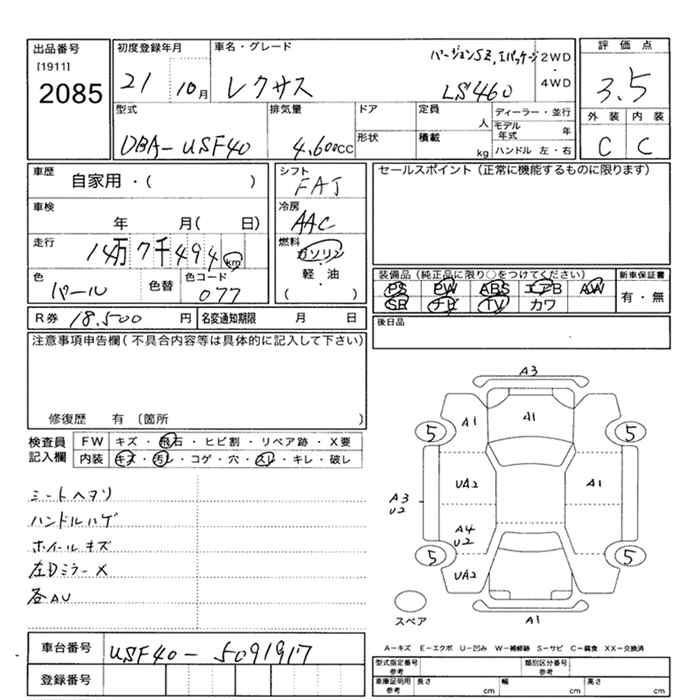 出品番号
[1911]
2085
初度登録年月
21 10月
車名・グレード
レクサス
バージョンSZ, Iパッケージ
LS460
2WD
・
4WD
評価点
3.5
外装 内装
C C
型式
DBA-USF40
排気量
4.600CC
ドア
形状
定員
人
積載
kg
ディーラー・並行
モデル年式 年
ハンドル 左・右
車歴
自家用・( )
車検
年 月( 日)
走行
14万7千494km
色
パール
色替
色コード
077
シフト
FAT
冷房
AAC
燃料
ガソリン
・
軽油
・
( )
セールスポイント(正常に機能するものに限ります)
装備品(純正品に限り○をつけてください)
PS PW ABS エアB AW
SR ナビ TV カワ
新車保証書
有・無
R券 18.500 円
名変通知期限 月 日
後日品
注意事項申告欄(不具合内容等は具体的に記入して下さい)
修復歴 有 (箇所 )
検査員
記入欄
FW キズ・飛石・ヒビ割・リペア跡・X要
内装 キズ・汚レ・コゲ・穴・スレ・キレ・破レ
シートヘタリ
ハンドルハゲ
ホイールキズ
左Dミラー X
各AU
車台番号
USF40-5091917
登録番号
A3
5
A1
A1
5
A3
U2
UA2
A1
A4
U2
5
UA2
5
A1
スペア
A-キズ E-エクボ U-凹み W-補修跡 S-サビ C-腐食 XX-交換済
型式指定番号
参考
類別区分番号
参考
車庫証明用
参考
長さ cm
幅 cm
高さ cm